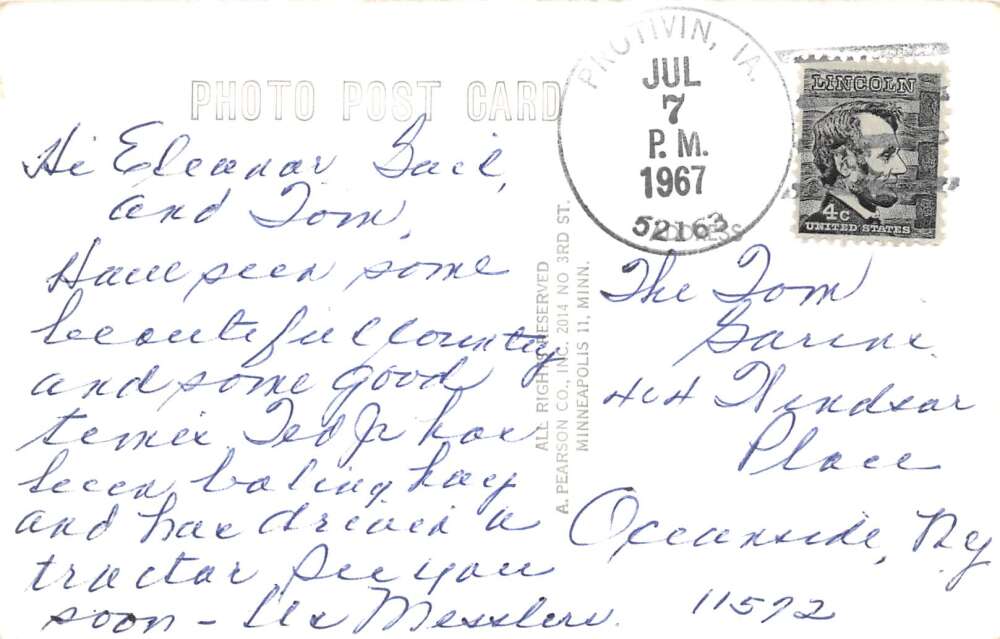 PHOTO POST CARD
PROTIVIN, IA.
JUL
7
P.M.
1967
52163
LINCOLN
4c
UNITED STATES
Hi Eleanor Gail,
and Tom,
Have seen some
beautiful country
and some good
times. Ted Jr has
been baling hay
and has driven a
tractor, See you
soon - Us Messlers.
ALL RIGHTS RESERVED
A. PEARSON CO., INC. 2014 NO 3RD ST.
MINNEAPOLIS 11, MINN.
The Tom
Place
Oceanside, Ny
11572